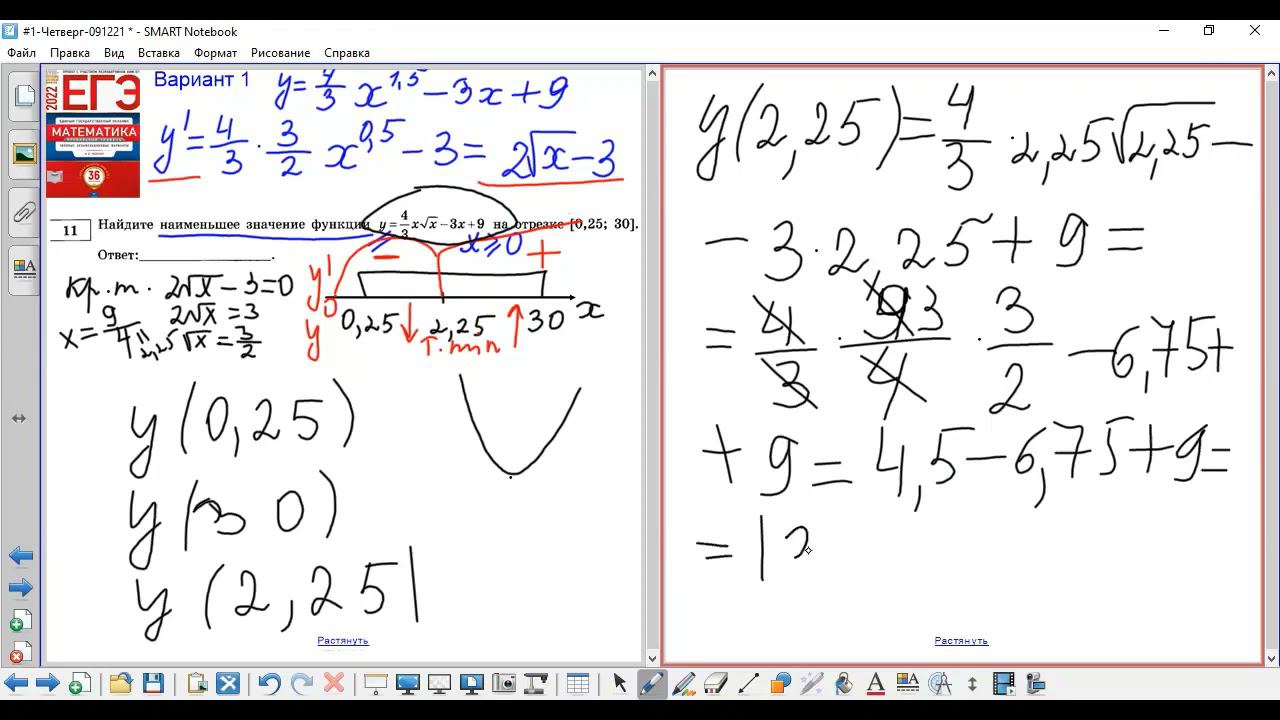 #1-Четверг-091221 * - SMART Notebook
Файл Правка Вид Вставка Формат Рисование Справка
2022
ЕГЭ
МАТЕМАТИКА
36
Вариант 1
y = 4/3 x^1,5 − 3x + 9
y' = 4/3 · 3/2 x^0,5 − 3 = 2√x − 3
11 Найдите наименьшее значение функции y = 4/3 x√x − 3x + 9 на отрезке [0,25; 30].
Ответ:____________________.
x ⩾ 0
Кр.т. 2√x − 3 = 0
2√x = 3
√x = 3/2
x = 9/4 = 2,25
y' − +
0 0,25 2,25 30 x
y ↓ т.min ↑
y(0,25)
y(30)
y(2,25)
Растянуть
y(2,25) = 4/3 · 2,25√2,25 −
− 3 · 2,25 + 9 =
= 4/3 · 9 3/4 · 3/2 − 6,75 +
+ 9 = 4,5 − 6,75 + 9 =
= 1
Растянуть